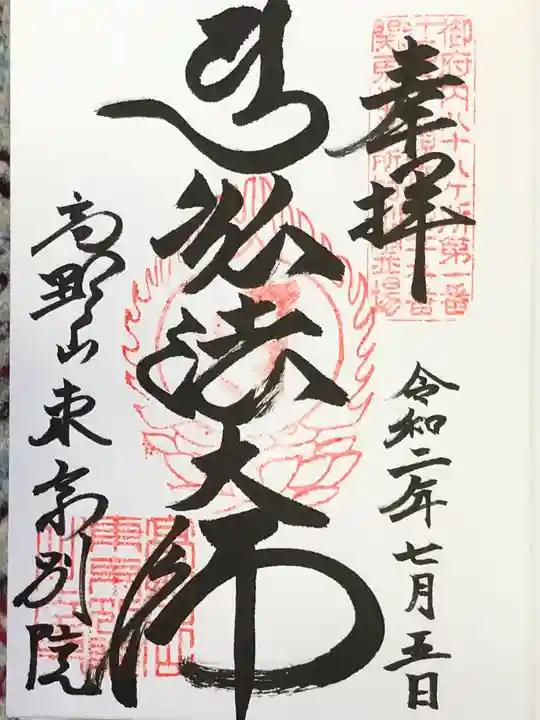 奉拝
御府内八十八ヶ所第一番
令和二年七月五日
弘法大師
高野山東京別院